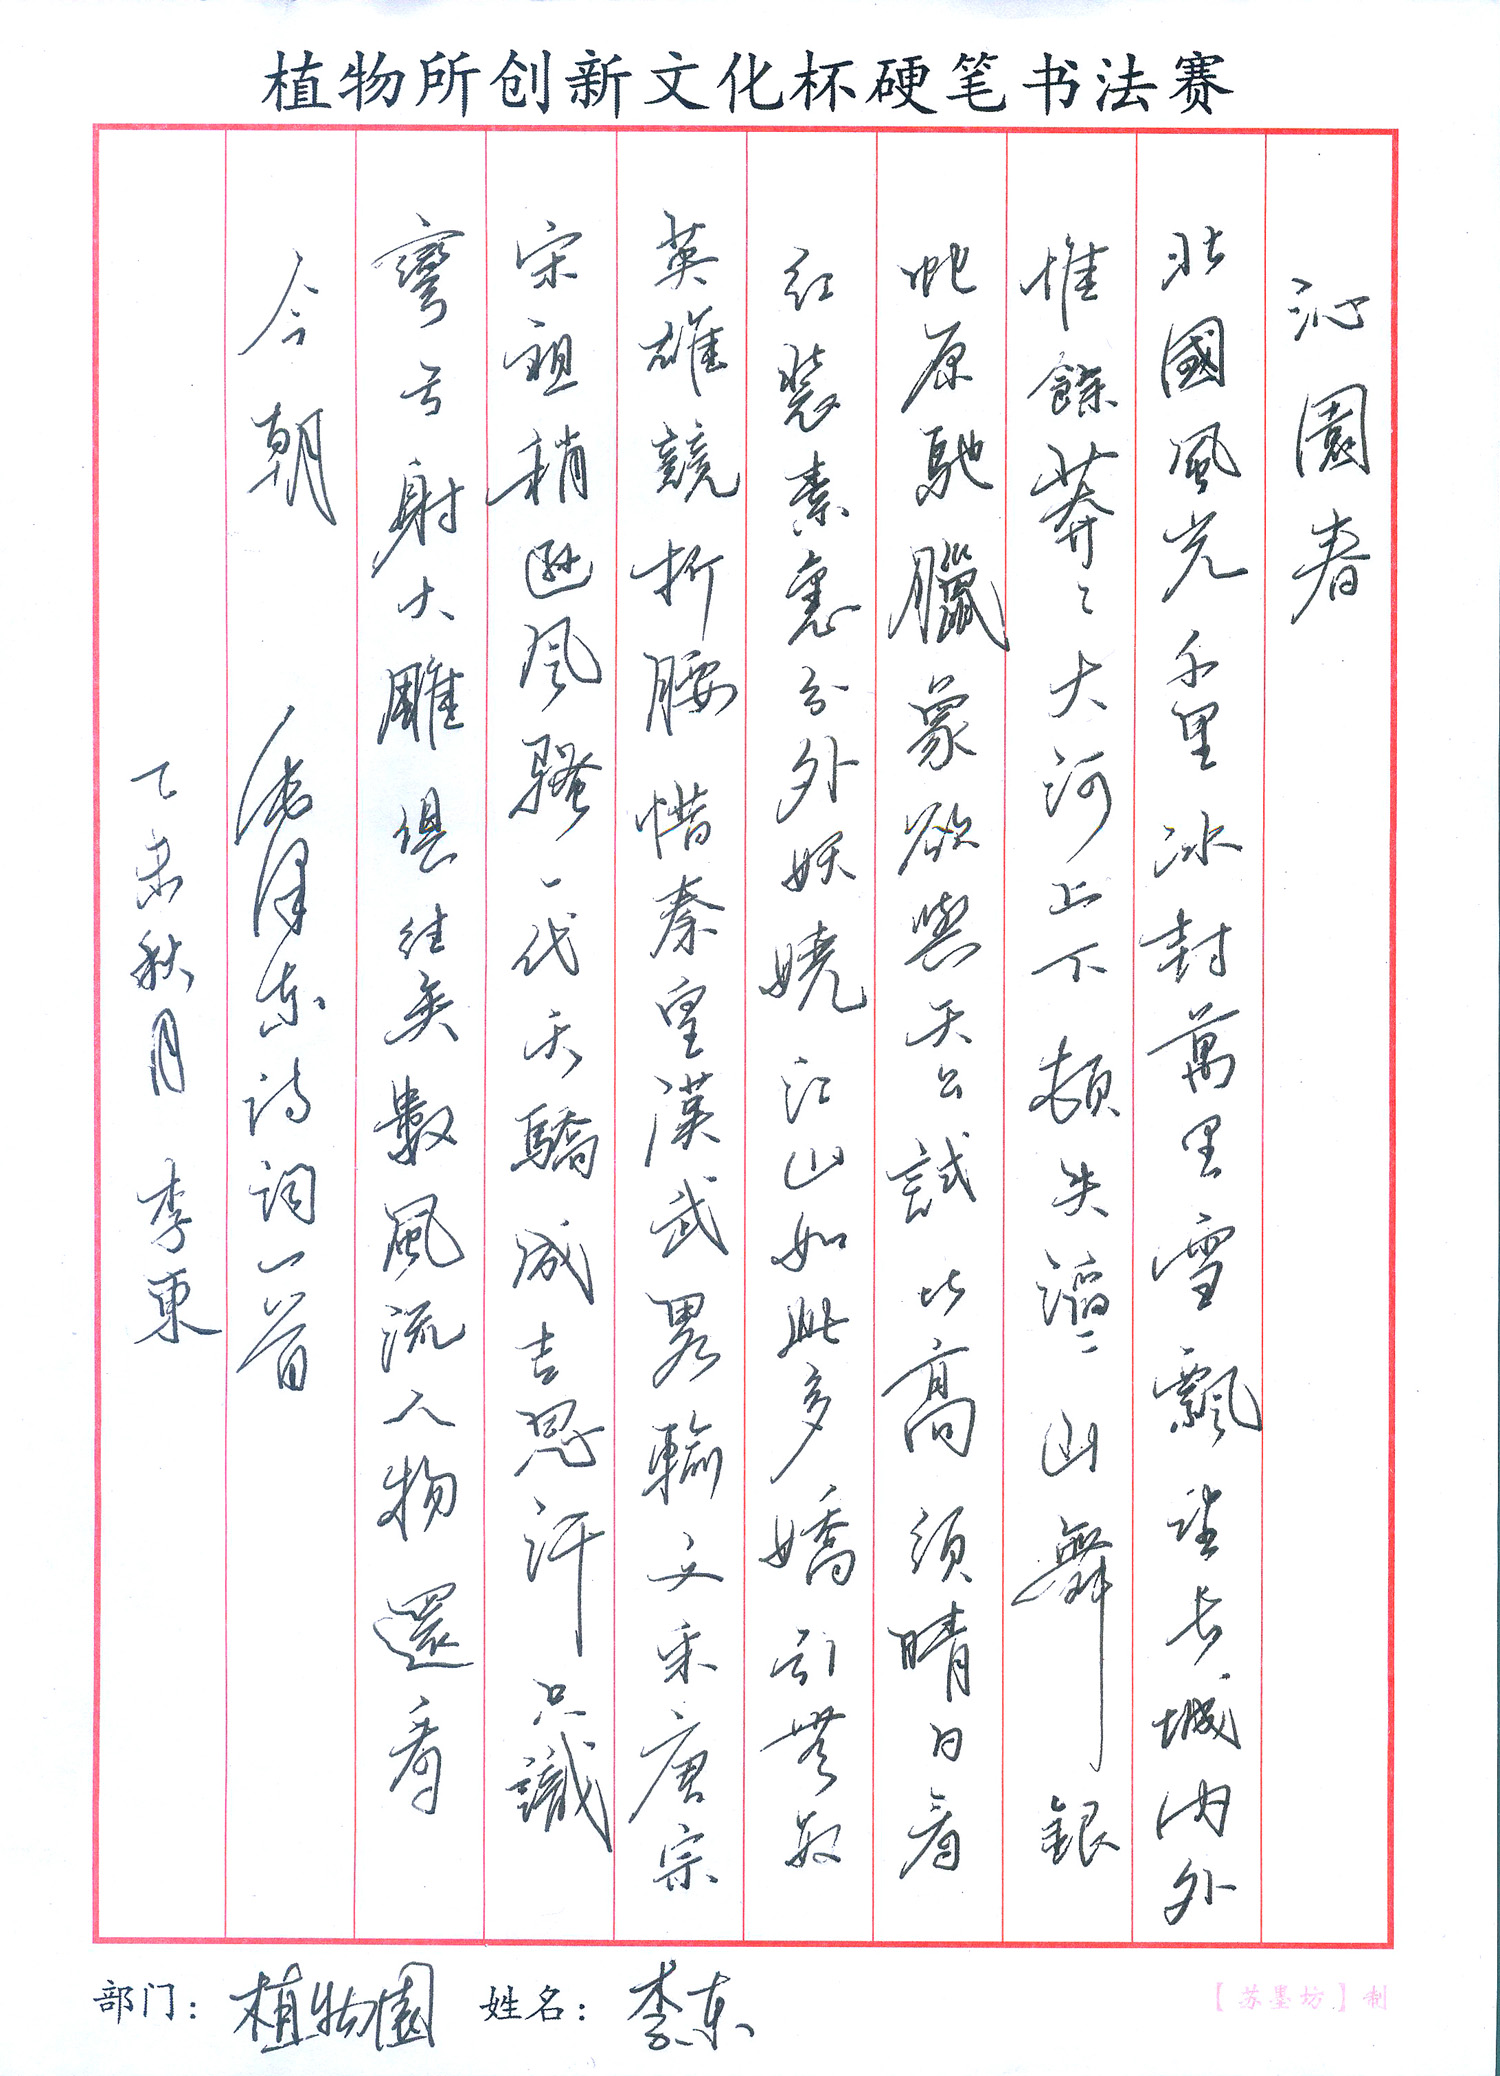 植物所创新文化杯硬笔书法赛
沁園春
北國風光千里冰封萬里雪飄望长城内外
惟餘莽〻大河上下頓失滔〻山舞銀
蛇原馳臘象欲與天公試比高須晴日看
红裝素裹分外妖嬈江山如此多嬌引無數
英雄競折腰惜秦皇漢武畧輸文采唐宗
宋祖稍遜风騷一代天驕成吉思汗只識
彎弓射大雕俱往矣數風流人物還看
今朝 录毛泽东诗词一首
乙未秋月 李東
部门：植物園 姓名：李东
【苏墨坊】制